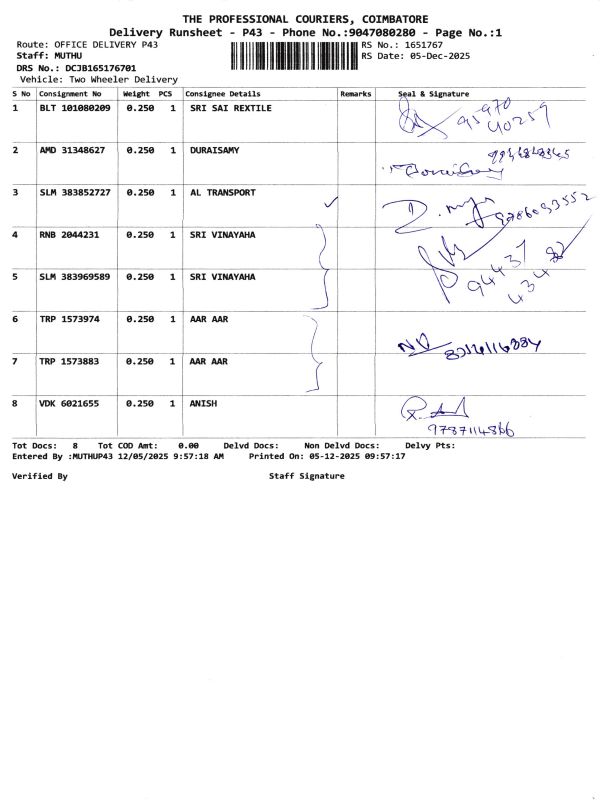 THE PROFESSIONAL COURIERS, COIMBATORE
Delivery Runsheet - P43 - Phone No.:9047080280 - Page No.:1
Route: OFFICE DELIVERY P43 RS No.: 1651767
Staff: MUTHU RS Date: 05-Dec-2025
DRS No.: DCJB165176701
Vehicle: Two Wheeler Delivery
S No Consignment No Weight PCS Consignee Details Remarks Seal & Signature
1 BLT 101080209 0.250 1 SRI SAI REXTILE 95970
40259
2 AMD 31348627 0.250 1 DURAISAMY
Doraisamy
3 SLM 383852727 0.250 1 AL TRANSPORT
4 RNB 2044231 0.250 1 SRI VINAYAHA
94437
5 SLM 383969589 0.250 1 SRI VINAYAHA
6 TRP 1573974 0.250 1 AAR AAR
7 TRP 1573883 0.250 1 AAR AAR
8 VDK 6021655 0.250 1 ANISH
9787114866
Tot Docs: 8 Tot COD Amt: 0.00 Delvd Docs: Non Delvd Docs: Delvy Pts:
Entered By :MUTHUP43 12/05/2025 9:57:18 AM Printed On: 05-12-2025 09:57:17
Verified By Staff Signature